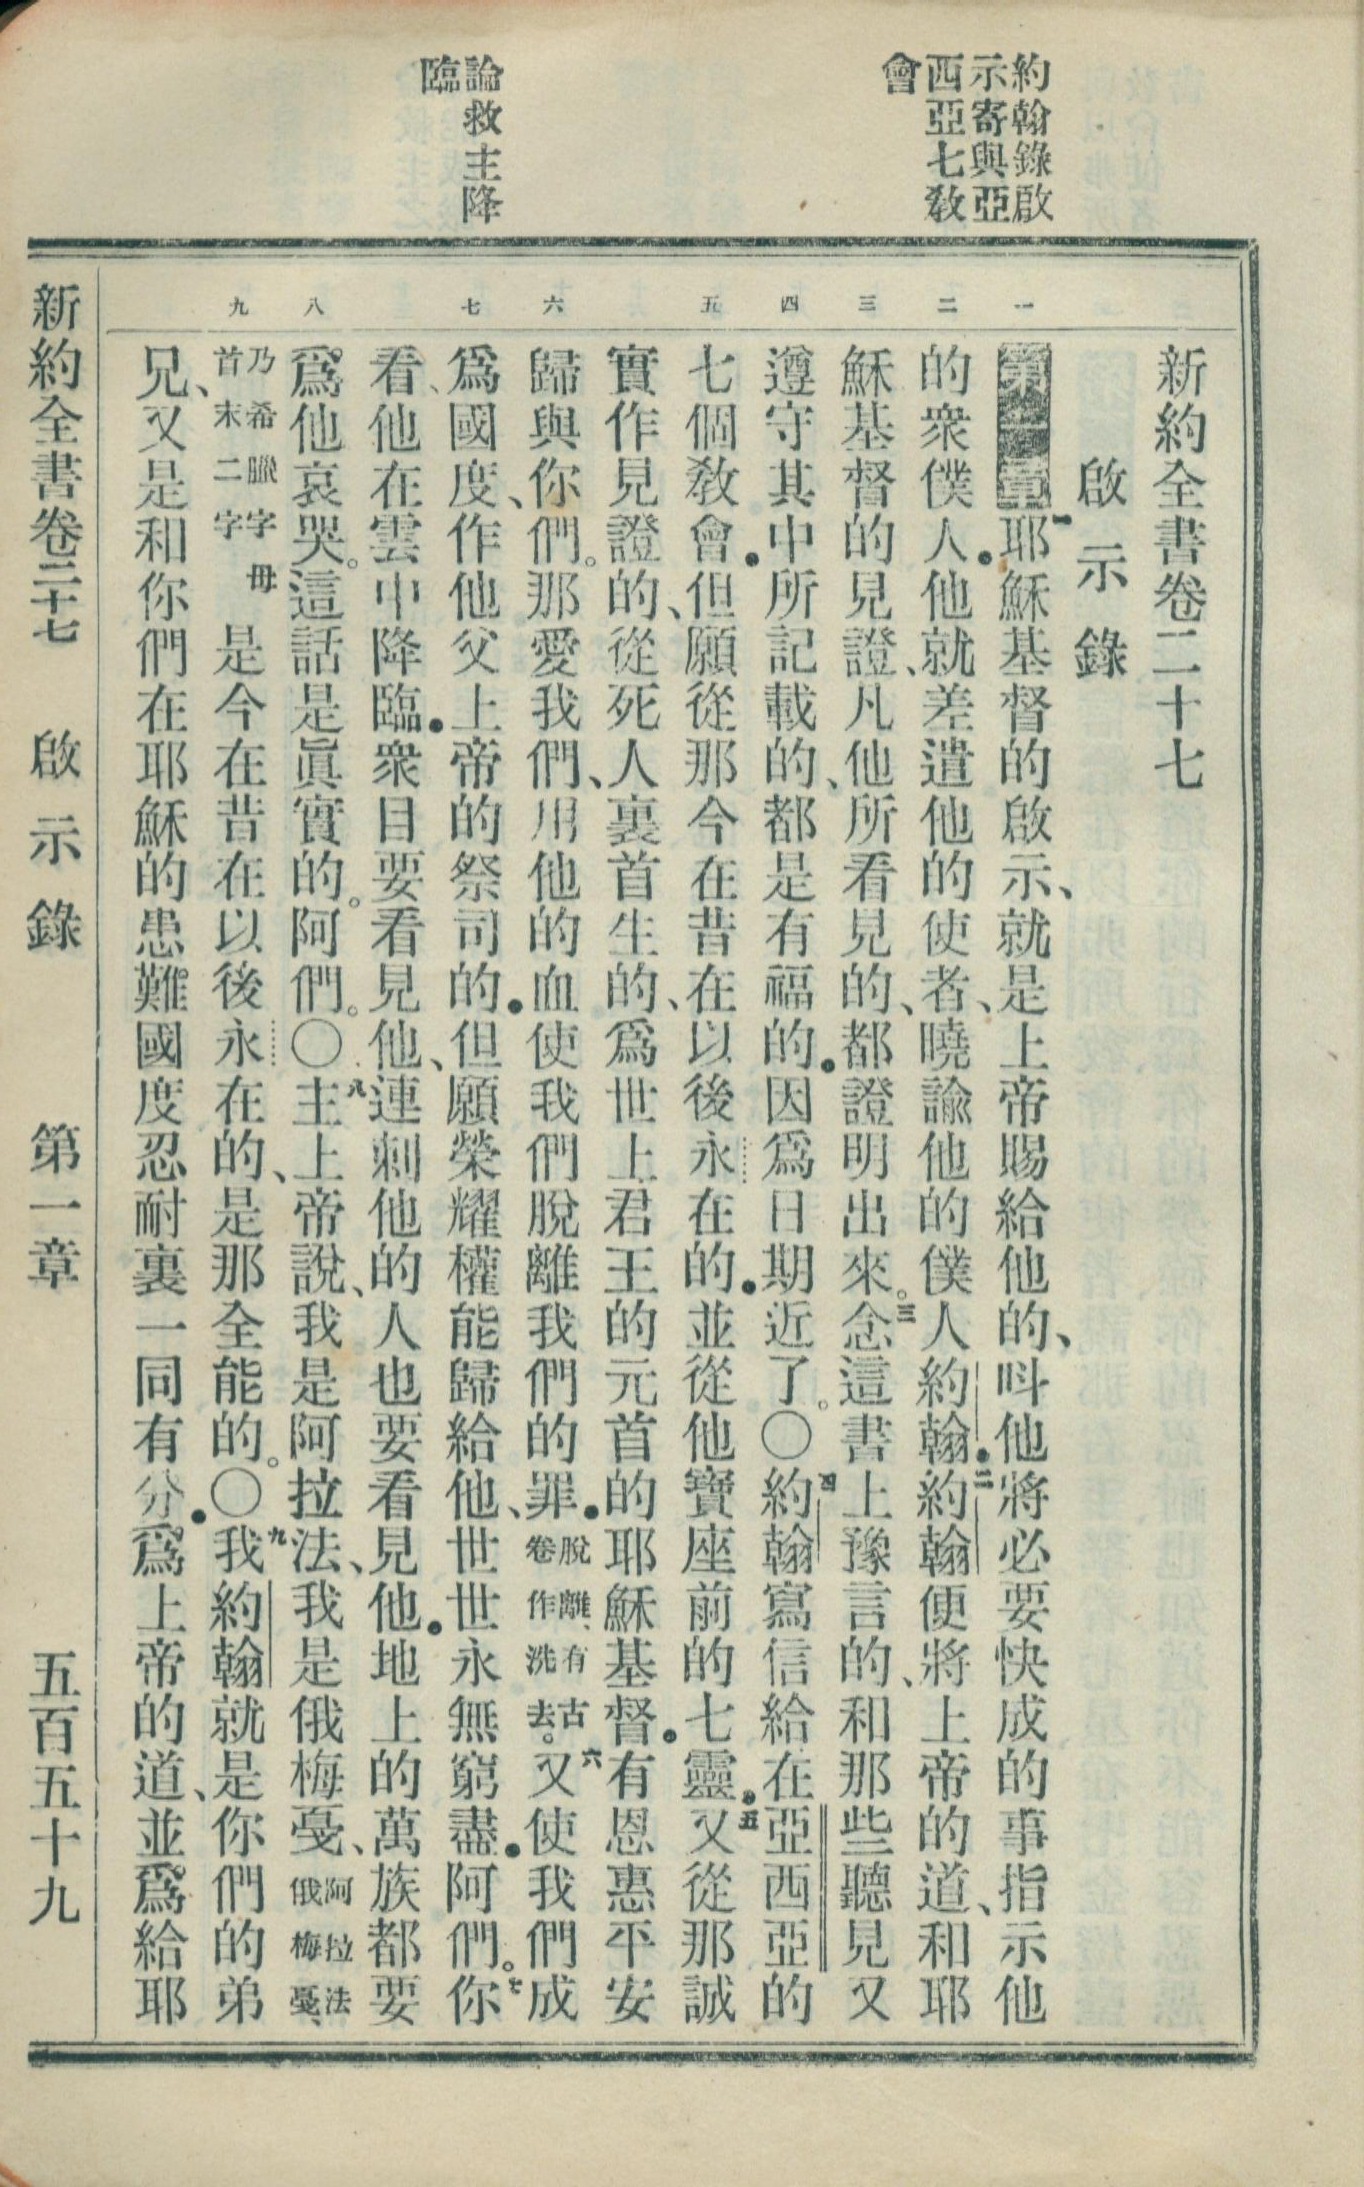 約翰錄啟
示寄與亞
西亞七敎
會
論救主降
臨
一
二
三
四
五
六
七
八
九
新約全書卷二十七
啟示錄
第一章一耶穌基督的啟示、就是上帝賜給他的、呌他將必要快成的事指示他
的衆僕人．他就差遣他的使者、曉諭他的僕人約翰．二約翰便將上帝的道、和耶
穌基督的見證、凡他所看見的、都證明出來。三念這書上豫言的、和那些聽見又
遵守其中所記載的、都是有福的．因爲日期近了。〇四約翰寫信給在亞西亞的
七個敎會．但願從那今在昔在以後永在的．並從他寶座前的七靈．五又從那誠
實作見證的、從死人裏首生的、爲世上君王的元首的耶穌基督．有恩惠平安
歸與你們。那愛我們、用他的血使我們脫離我們的罪．脫離、有古卷作洗去。六又使我們成
爲國度、作他父上帝的祭司的．但願榮耀權能歸給他、世世永無窮盡．阿們。七你
看、他在雲中降臨．衆目要看見他、連刺他的人也要看見他．地上的萬族都要
爲他哀哭。這話是眞實的。阿們。〇八主上帝說、我是阿拉法、我是俄梅戞、阿拉法俄梅戞、
乃希臘字母首末二字是今在昔在以後永在的、是那全能的。〇九我約翰就是你們的弟
兄、又是和你們在耶穌的患難國度忍耐裏一同有分．爲上帝的道、並爲給耶
新約全書卷二十七　啟示錄　第一章　五百五十九